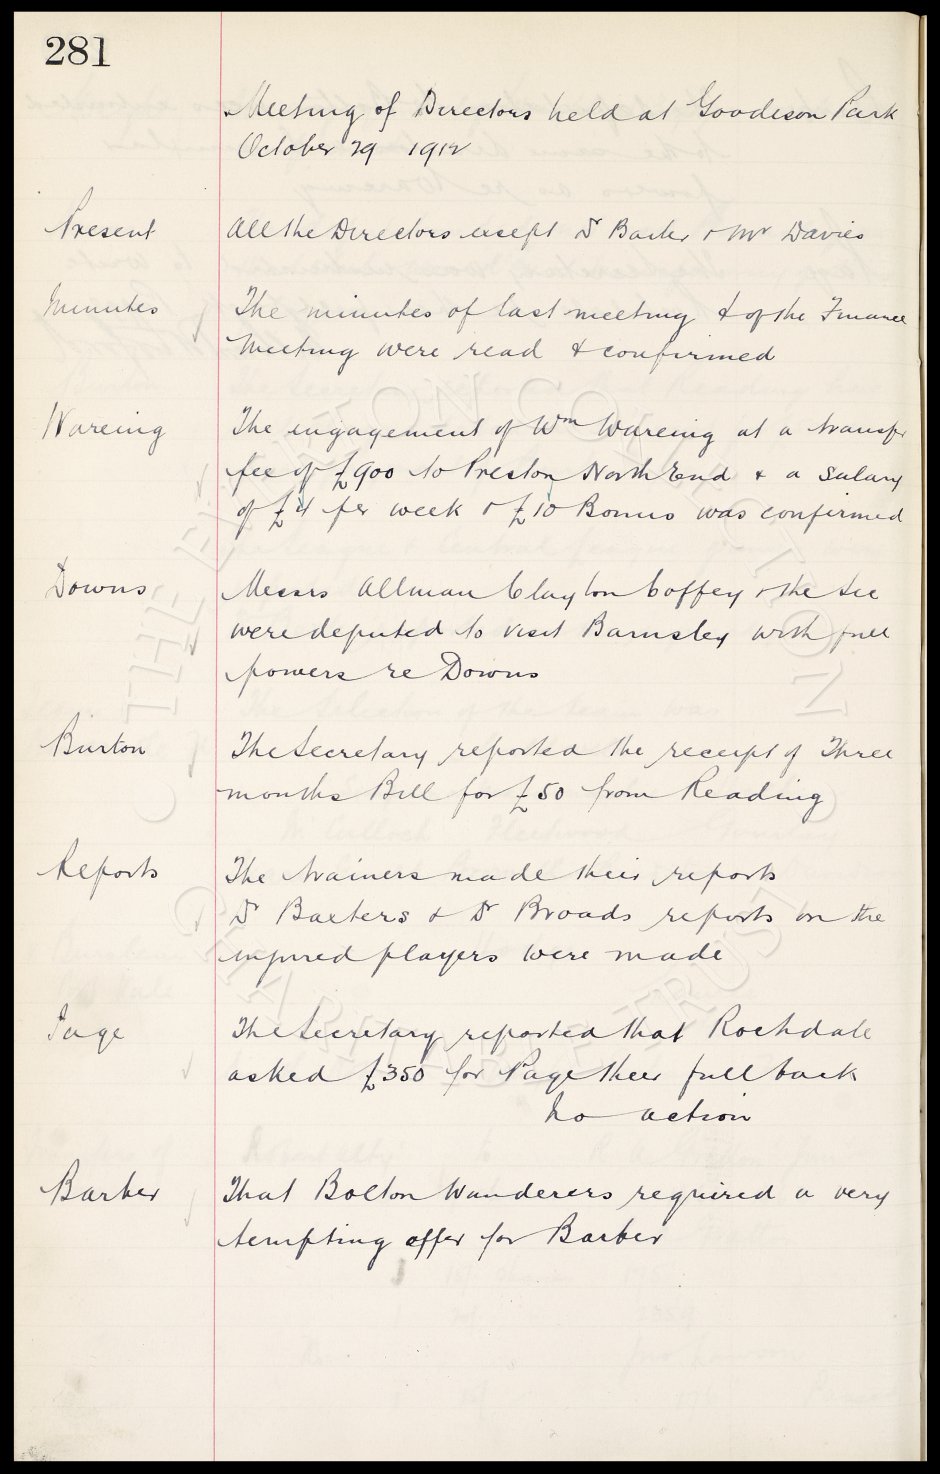 281
Meeting of Directors held at Goodison Park
October 29 1912
Present All the Directors except Dr Baxter & Mr Davies
Minutes The minutes of last meeting & of the Finance
Meeting were read & confirmed
Wareing The engagement of Wm Wareing at a transfer
fee of £900 to Preston North End & a salary
of £4 per week & £10 Bonus was confirmed
Downs Messrs Allman Clayton Coffey & the Sec
were deputed to visit Barnsley with full
powers re Downs
Burton The Secretary reported the receipt of Three
months Bill for £50 from Reading
Reports The trainers made their reports
Dr Baxters & Dr Broads reports on the
injured players were made
Page The Secretary reported that Rochdale
asked £350 for Page their full back
No action
Barber That Bolton Wanderers required a very
tempting offer for Barber
THE EVERTON COLLECTION
CHARITABLE TRUST